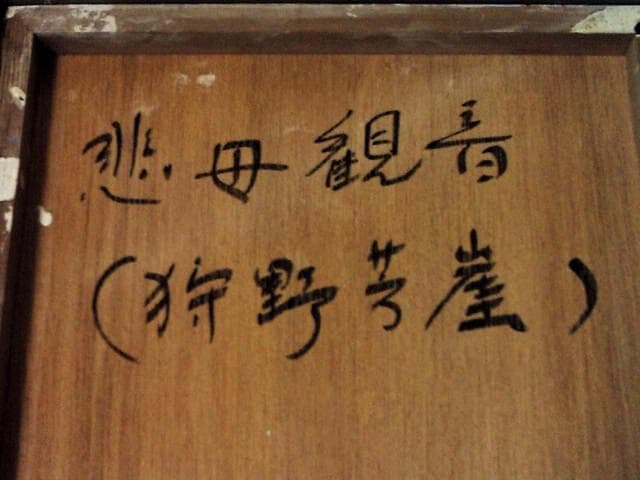 悲母観音
(狩野芳崖)